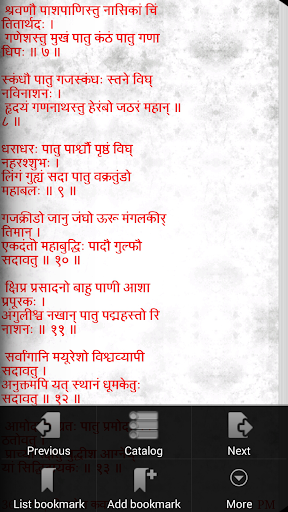 श्रवणौ पाशपाणिस्तु नासिकां चिं
तितार्थदः ।
गणेशस्तु मुखं पातु कंठं पातु गणा
धिपः ॥ ७ ॥
स्कंधौ पातु गजस्कंधः स्तने विघ्
नविनाशनः ।
हृदयं गणनाथस्तु हेरंबो जठरं महान् ॥
८ ॥
धराधरः पातु पार्श्वौ पृष्ठं विघ्
नहरश्शुभः ।
लिंगं गुह्यं सदा पातु वक्रतुंडो
महाबलः ॥ ९ ॥
गजक्रीडो जानु जंघो ऊरू मंगलकीर्
तिमान् ।
एकदंतो महाबुद्धिः पादौ गुल्फौ
सदावतु ॥ १० ॥
क्षिप्र प्रसादनो बाहु पाणी आशा
प्रपूरकः ।
अंगुलीश्च नखान् पातु पद्महस्तो रि
नाशनः ॥ ११ ॥
सर्वांगानि मयूरेशो विश्वव्यापी
सदावतु ।
अनुक्तमपि यत् स्थानं धूमकेतुः
सदावतु ॥ १२ ॥
पातु
॥ १३ ॥
Previous
Catalog
Next
List bookmark
Add bookmark
More
PM